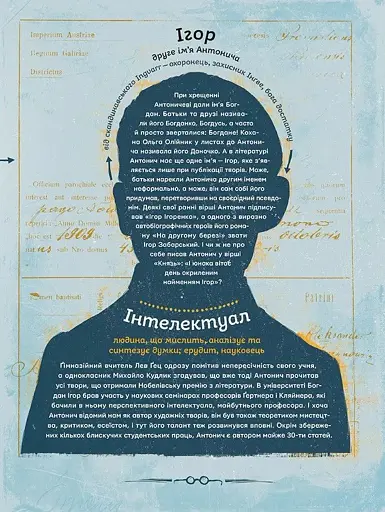 Imperium Austriae
Regnum Galiciae
Ігор
друге ім'я Антонича
від скандинавського Ingvarr – охоронець, захисник Інгве, бога достатку
При хрещенні
Антоничеві дали ім'я Бог-
дан. Батьки та друзі назива-
ли його Богданко, Бодусь, а часто
й просто зверталися: Богдане! Коха-
на Ольга Олійник у листах до Антони-
ча називала його Даночко. А в літературі
Антонич має ще одне ім'я – Ігор, яке з'яв-
ляється лише при публікації творів. Може,
батьки нарекли Антонича другим іменем
неформально, а може, він сам собі його
придумав, перетворивши на своєрідний псевдо-
нім. Деякі свої ранні вірші Антонич підпису-
вав «Ігор Ігоренко», а одного з виразно
автобіографічних героїв його рома-
ну «На другому березі» звати
Ігор Заборський. І чи ж не про
себе писав Антонич у вірші
«Князь»: «І юнака вітає
день окрилений
найменням Ігор»?
1909
Patrini
Інтелектуал
людина, що мислить, аналізує та
синтезує думки; ерудит, науковець
Гімназійний вчитель Лев Ґец одразу помітив непересічність свого учня,
а однокласник Михайло Кудлик згадував, що вже тоді Антонич прочитав
усі твори, що отримали Нобелівську премію з літератури. В університеті Бог-
дан Ігор брав участь у наукових семінарах професорів Ґертнера і Кляйнера, які
бачили в ньому перспективного інтелектуала, майбутнього професора. І хоча
Антонич відомий нам як автор художніх творів, він був також теоретиком мистец-
тва, критиком, есеїстом, і тут його талант теж розвинувся вповні. Окрім збереже-
них кількох блискучих студентських праць, Антонич є автором майже 30-ти статей.